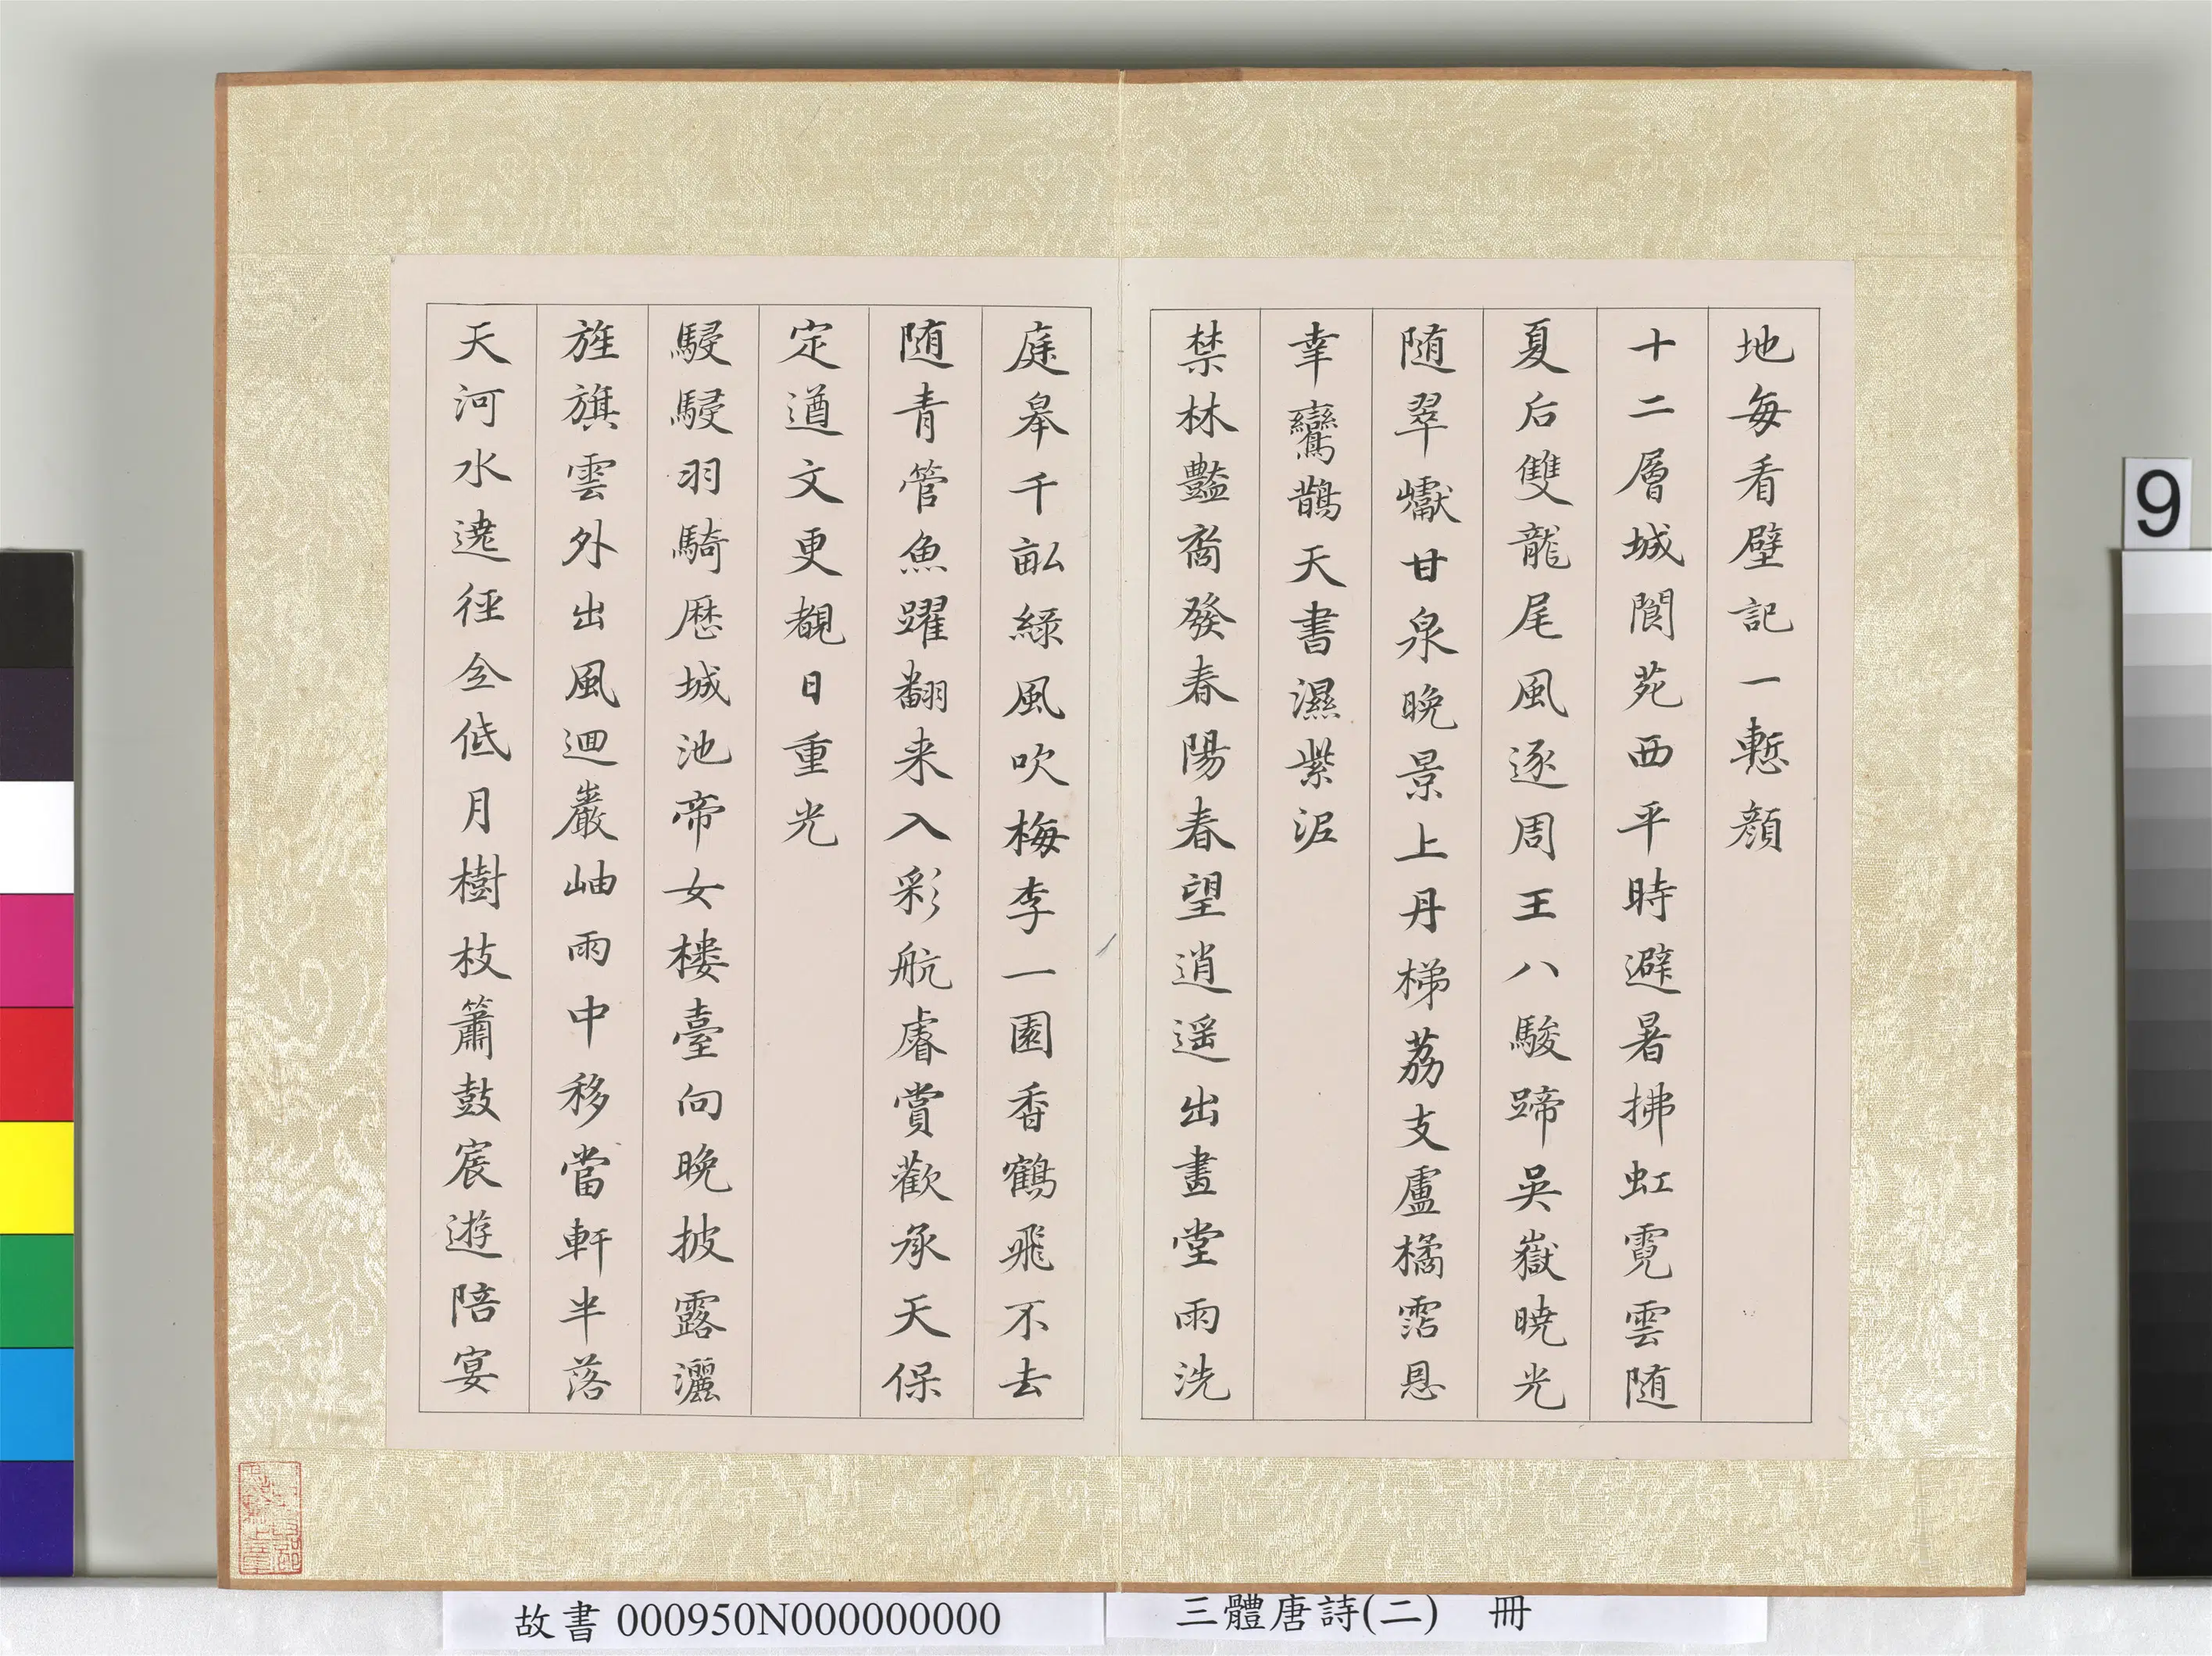 地每看壁記一慙顏
十二層城閬苑西平時避暑拂虹霓雲随
夏后雙龍尾風逐周王八駿蹄吳嶽曉光
随翠巘甘泉晚景上丹梯荔支盧橘霑恩
幸鸞鵲天書濕紫泥
禁林艷裔發春陽春望逍遥出畫堂雨洗
庭皋千畝綠風吹梅李一園香鶴飛不去
随青管魚躍翻来入彩航睿賞歡承天保
定遒文更覩日重光
駸駸羽騎歷城池帝女楼臺向晚披露灑
旌旗雲外出風迴巖岫雨中移當軒半落
天河水遶徑全低月樹枝簫鼓宸遊陪宴
9
故書 000950N000000000
三體唐詩(二) 冊